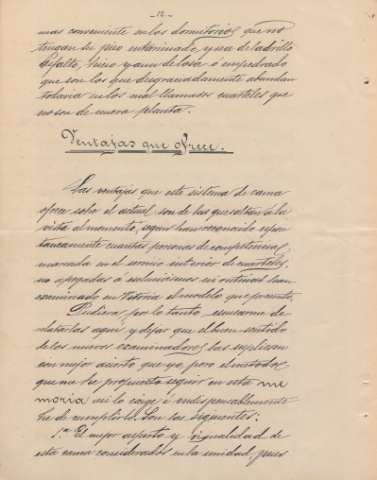 -12-
mas conveniente en los dormitorios que no
tengan su piso entarimado, y sea de ladrillo
asfalto, liso y aun de losa ó empedrado
que son los que desgraciadamente abundan
todavia en los mal llamados cuarteles que
no son de nueva planta.
Ventajas que ofrece.
Las ventajas que este sistema de cama
ofrece sobre el actual son de las que saltan á la
vista al momento, segun han reconocido espon
taneamente cuantas personas de competencia
en el servicio interior de cuarteles,
no apegadas á han
examinado en Vitoria el modelo que presento.
Pudiera por lo tanto escusarme de
relatarlas aqui y dejar que el buen sentido
de los nuevos examinadores las supliesen
con mejor acierto que yo, pero el metodo
que me he propuesto seguir en esta me
moria asi lo exige é indispensablemente
he de cumplirlo. Son las siguientes:
1.ª El mejor aspecto y igualdad de
esta cama consideradas en la unidad, pues